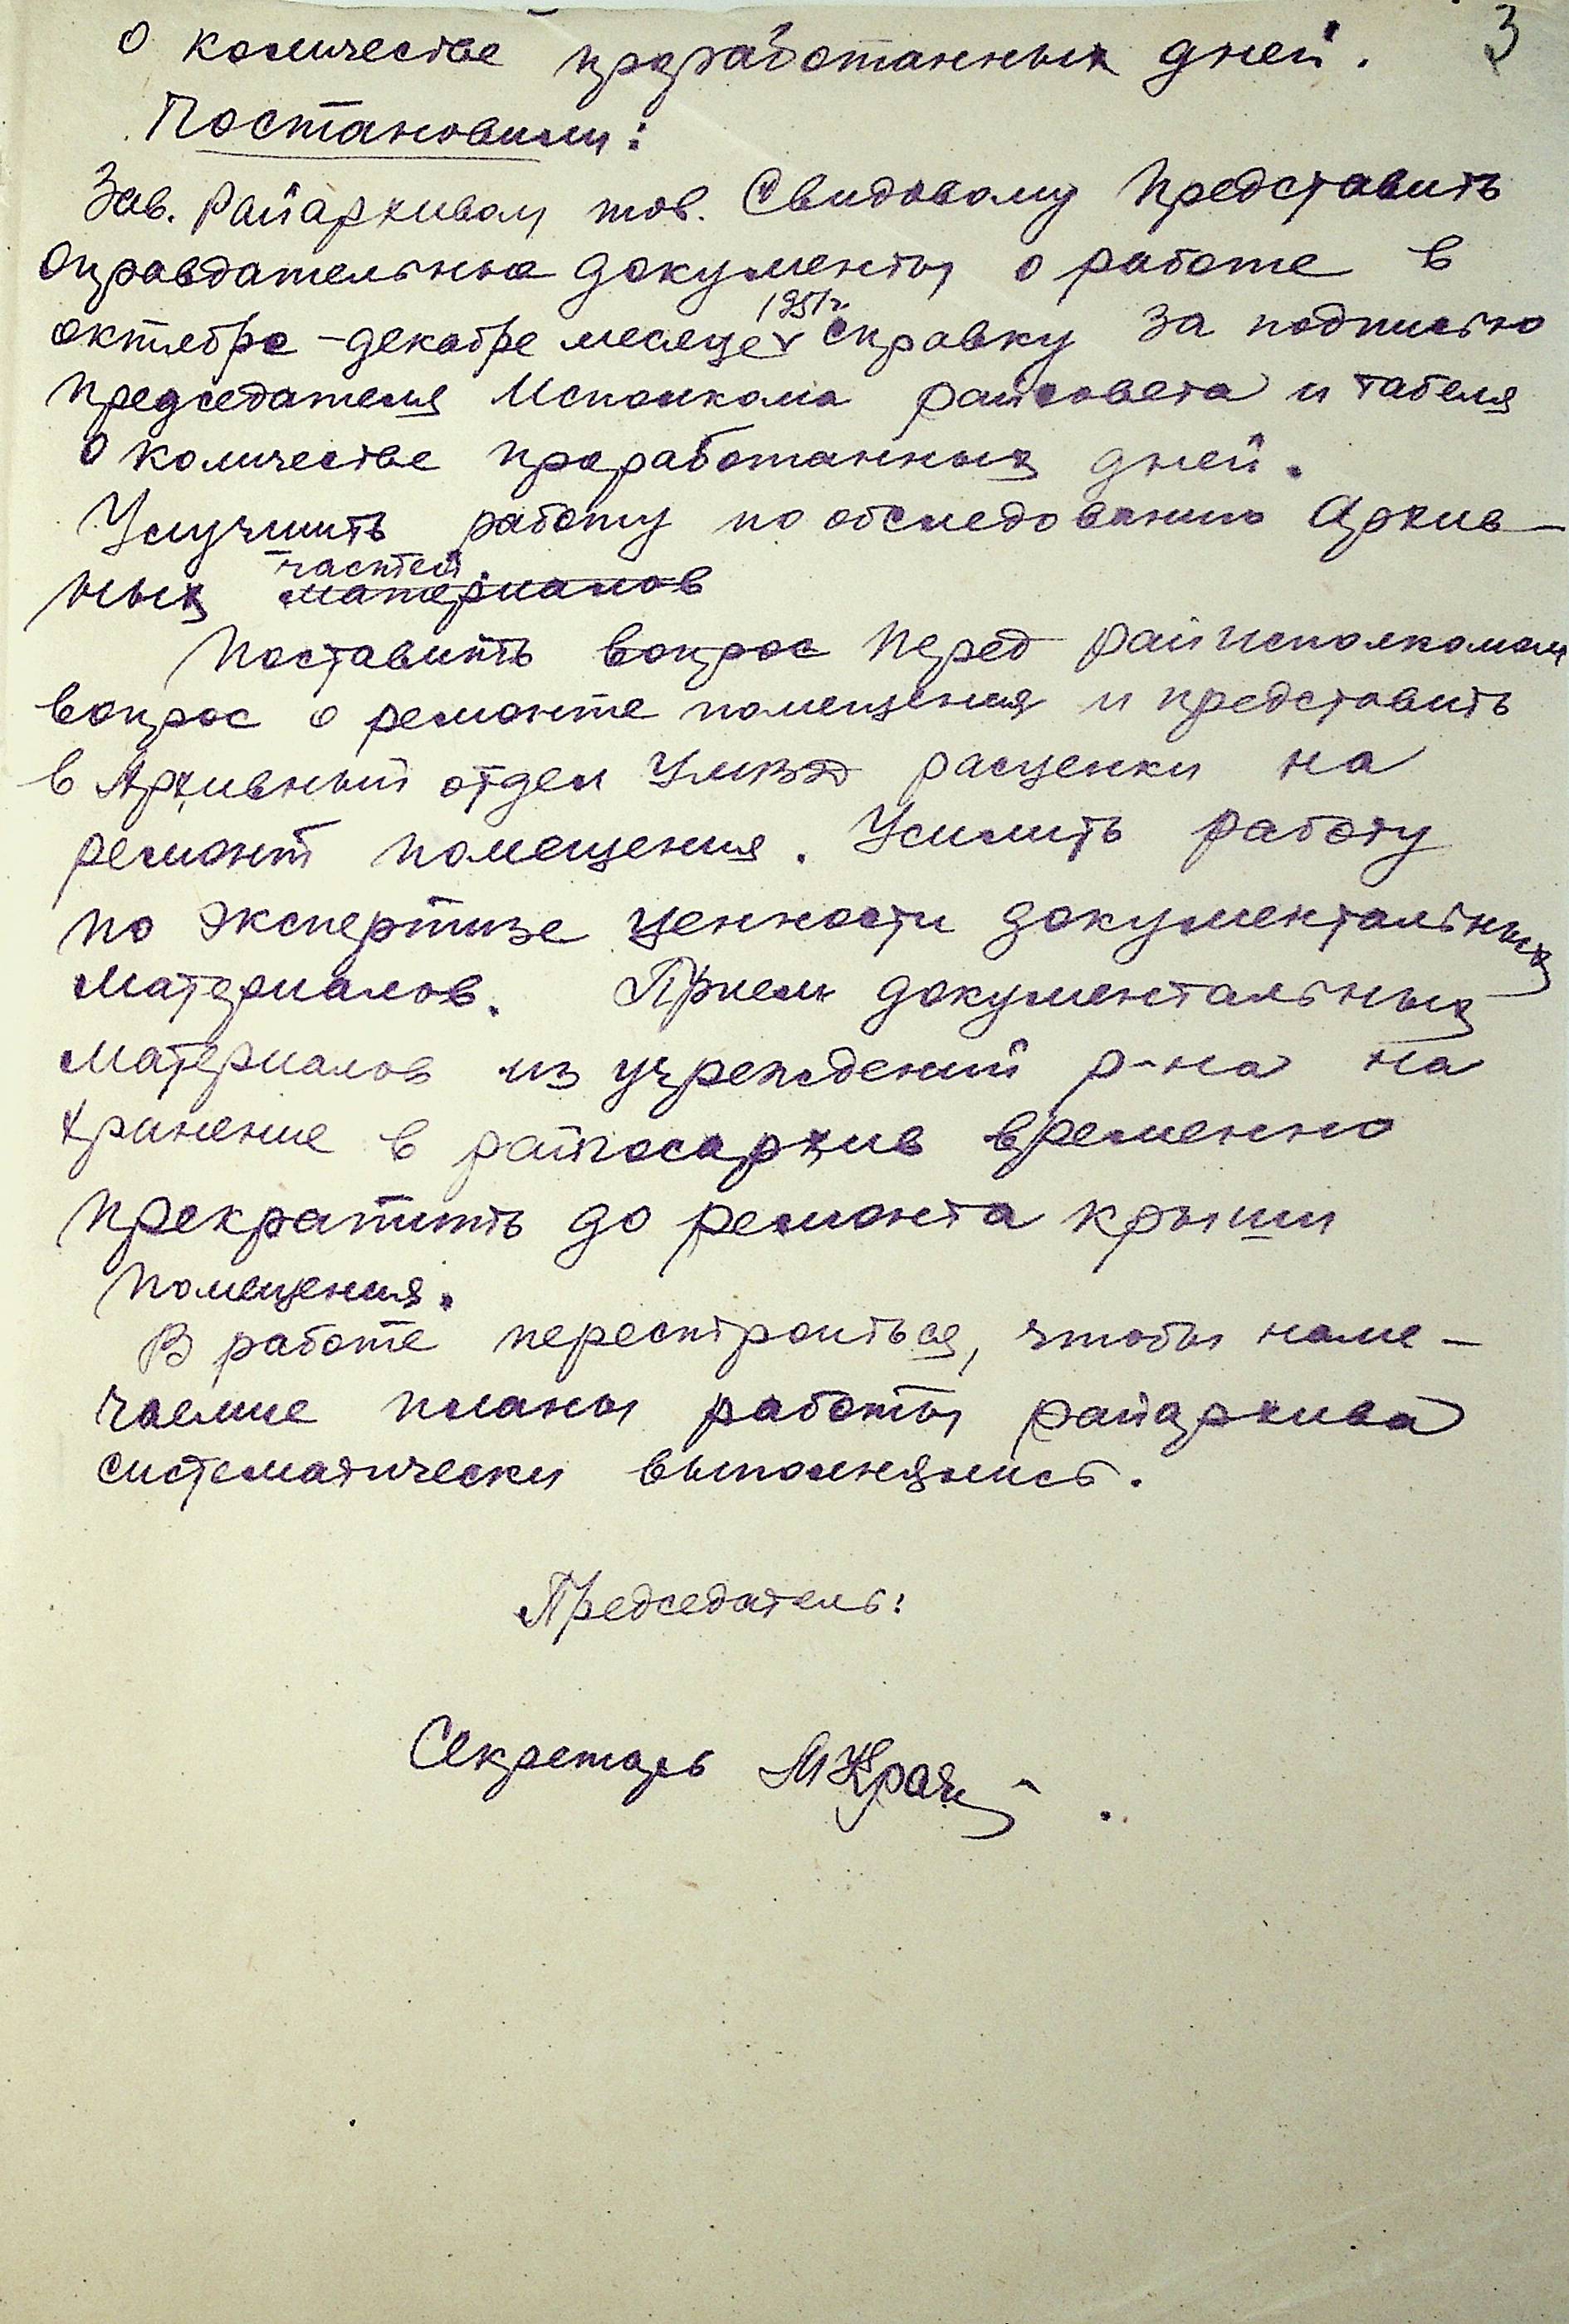 3
о количестве проработанных дней.
Постановили:
Зав. Райархивом тов. Свидовому представить
оправдательные документы о работе в
октябре - декабре месяце 1951г. справку за подписью
председателя Исполкома райсовета и табеля
о количестве проработанных дней.
Улучшить работу по обследованию Архив-
ных частей. материалов
Поставить вопрос перед райисполкомом
вопрос о ремонте помещения и представить
в Архивный отдел УМВД расценки на
ремонт помещения. Усилить работу
по экспертизе ценности документальных
материалов. Прием документальных
материалов из учреждений р-на на
хранение в райгосархив временно
прекратить до ремонта крыши
помещения.
В работе перестроиться, чтобы наме-
чаемые планы работы райархива
систематически выполнялись.
Председатель:
Секретарь